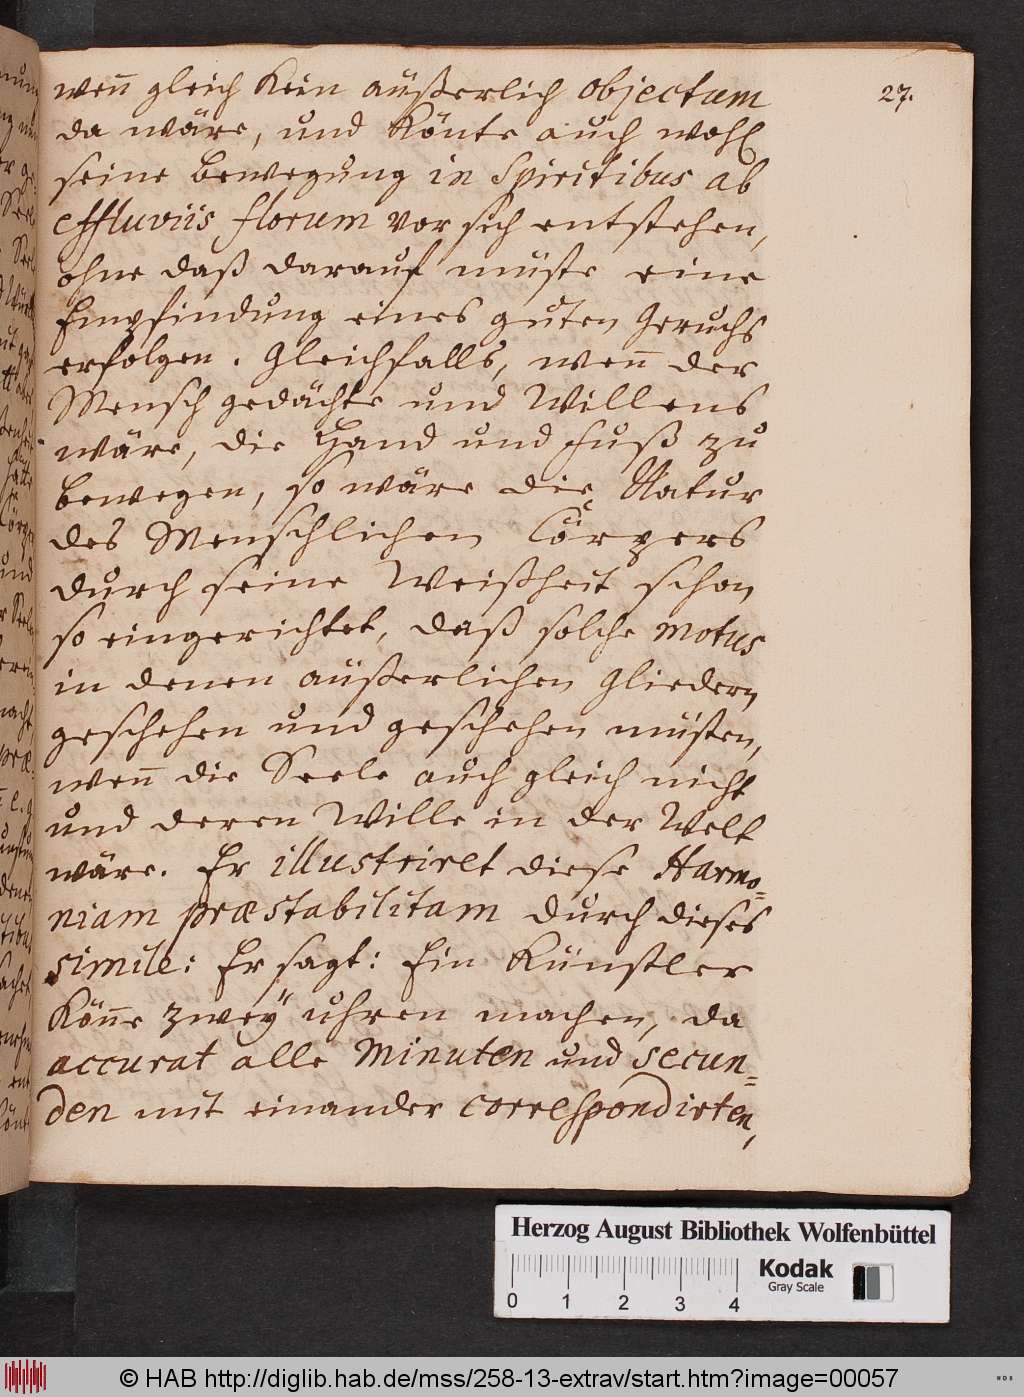 27.
wen̄ gleich kein äußerlich objectum
da wäre, und könte auch wohl
seine bewegung in Spiritibus ab
effluviis florum vor sich entstehen,
ohne daß darauf müste eine
Empfindung eines guten Geruchs
erfolgen. Gleichfalls, wen̄ der
Mensch gedächte und Willens
wäre, die Hand und Fuß zu
bewegen, so wäre die Natur
des Menschlichen Cörpers
durch seine Weißheit schon
so eingerichtet, daß solche motus
in denen äußerlichen Gliedern
geschehen und geschehen müsten,
wen̄ die Seele auch gleich nicht
und deren Wille in der Welt
wäre. Er illustriret diese Harmo=
niam præstabilitam durch dieses
simile: Er sagt: Ein Künstler
kön̄e zweÿ uhren machen, da
accurat alle Minuten und Secun=
den mit einander correspondirten,
Herzog August Bibliothek Wolfenbüttel
Kodak
Gray Scale
0 1 2 3 4
© HAB http://diglib.hab.de/mss/258-13-extrav/start.htm?image=00057